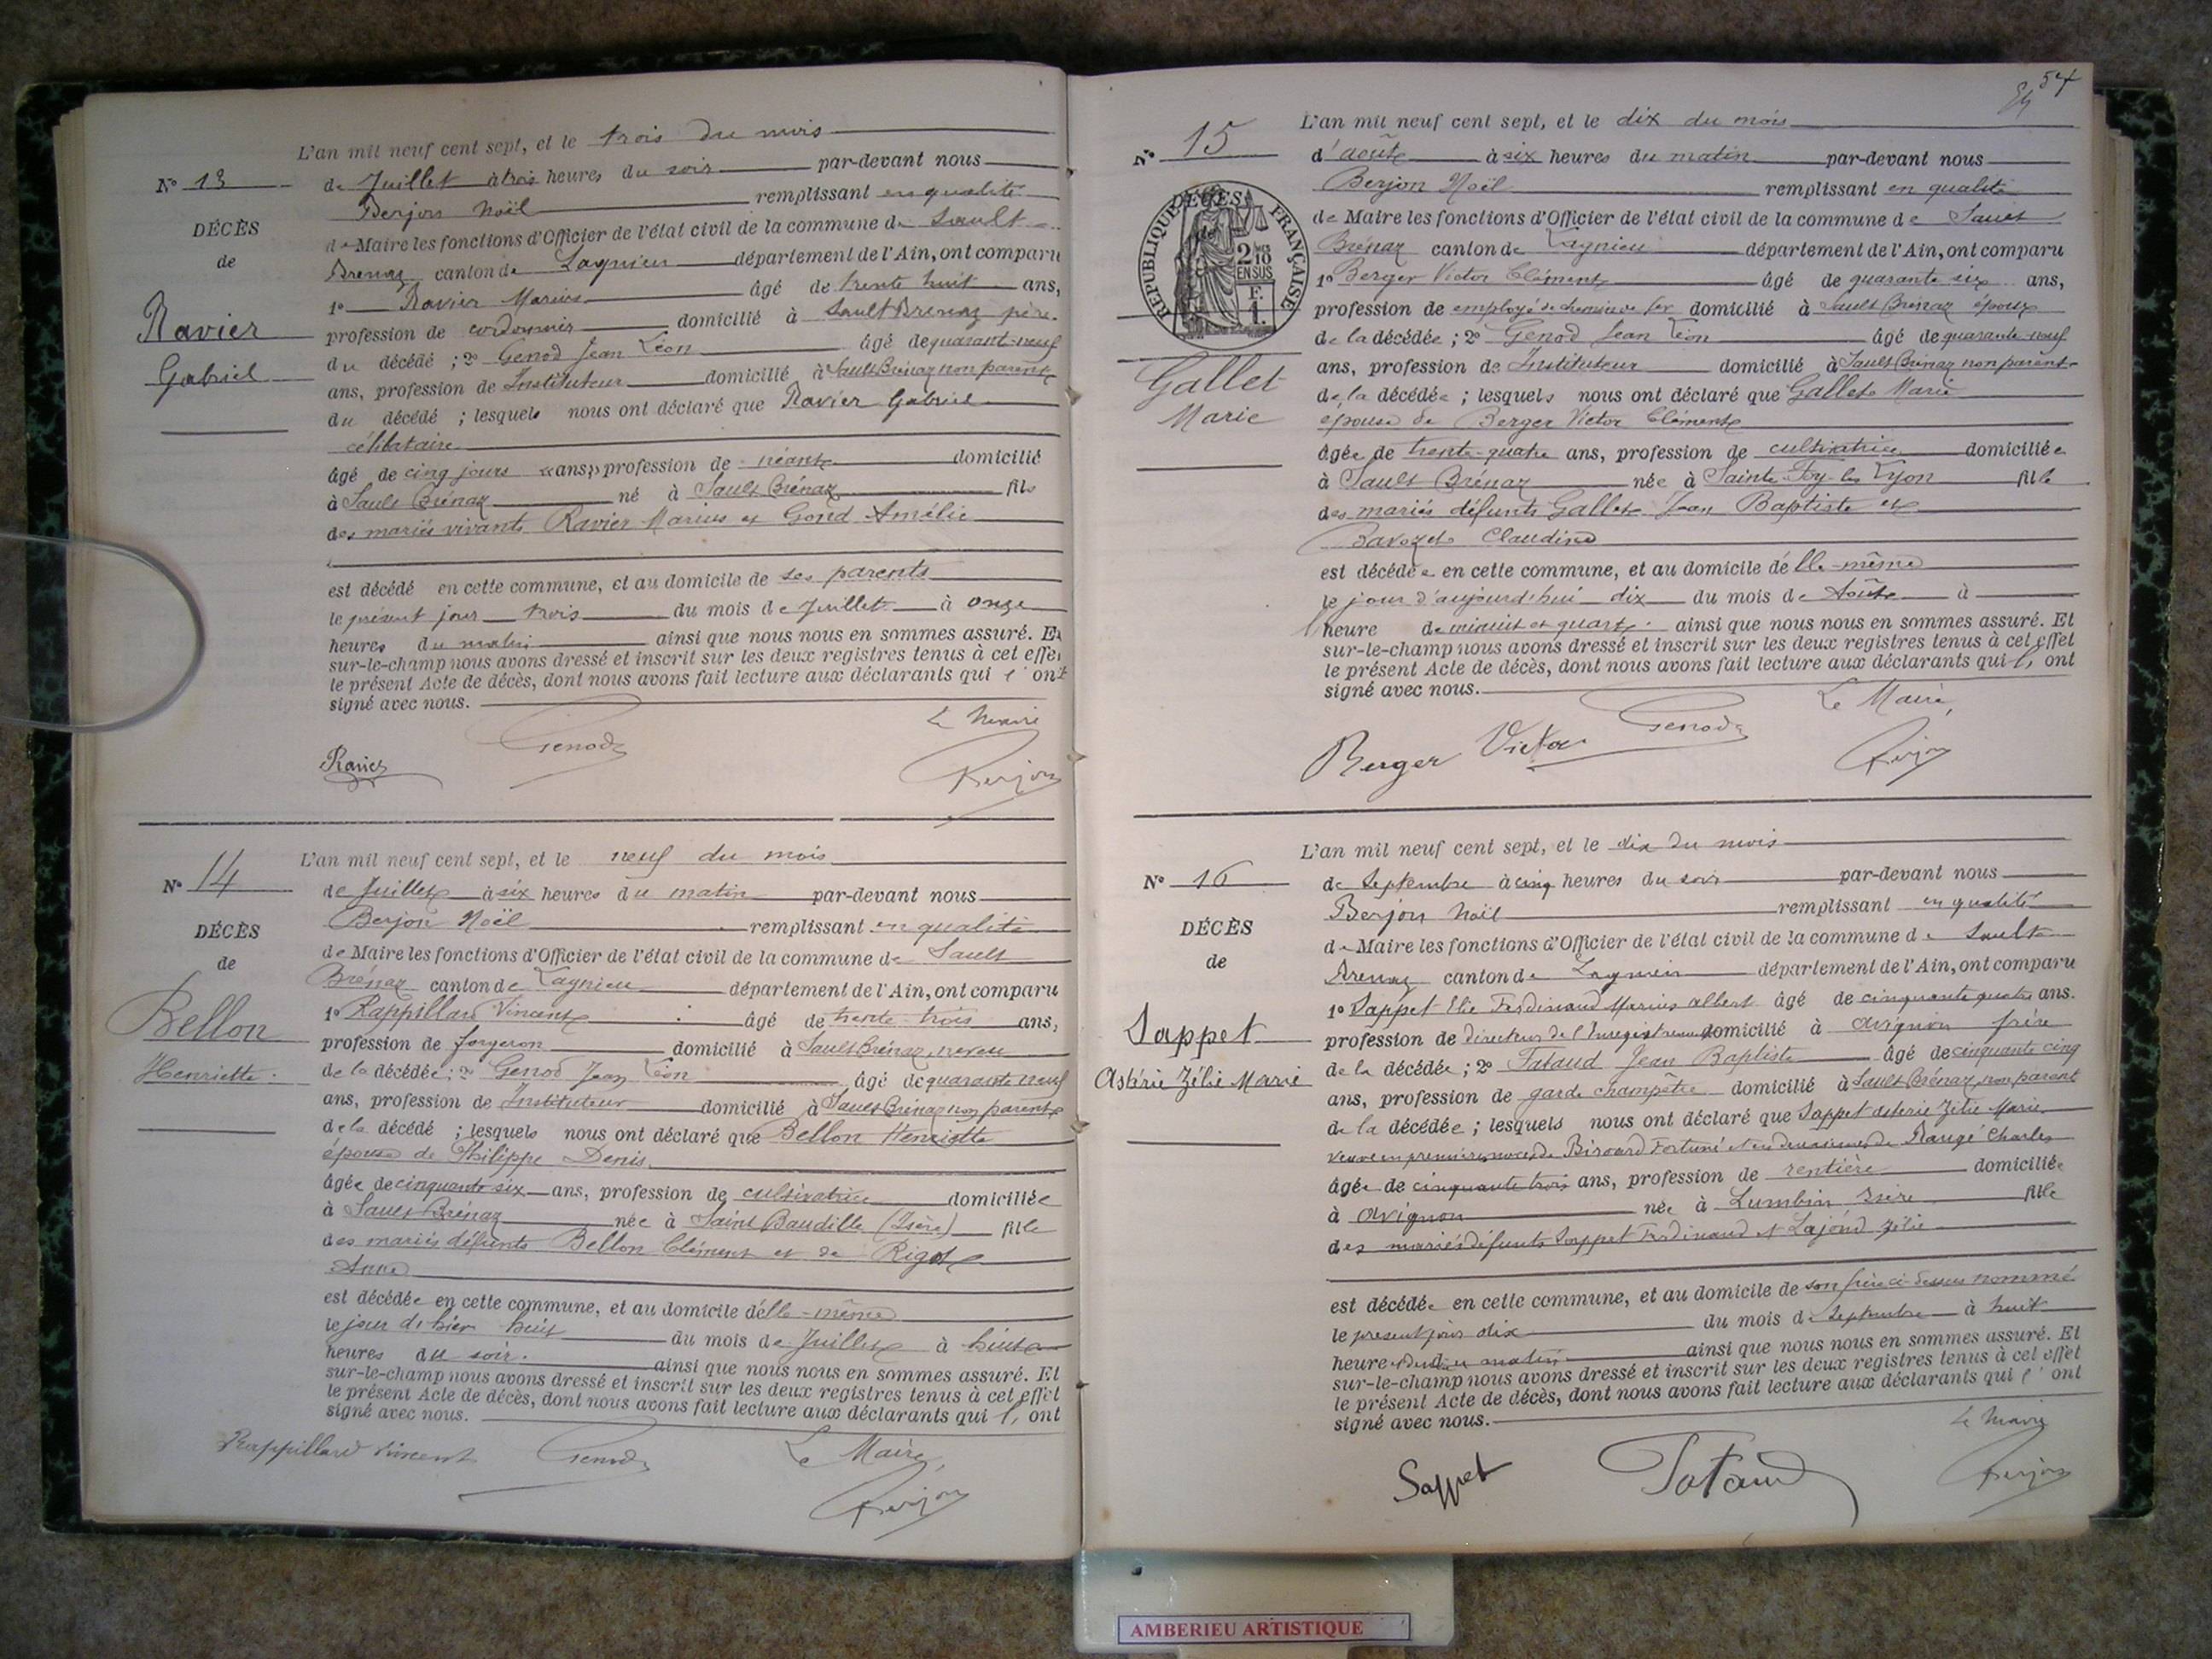 L'an mil neuf cent sept, et le trois du mois
N° 13
de Juillet à trois heures du soir par-devant nous
Berjon Noël remplissant en qualité
DÉCÈS
de Maire les fonctions d'Officier de l'état civil de la commune de Sault
de
Brenaz canton de Lagnieu département de l'Ain, ont comparu
1° Ravier Marius âgé de trente huit ans,
Ravier
profession de cordonnier domicilié à Sault Brenaz père
du décédé ; 2° Genod Jean Léon âgé de quarant-neuf
Gabriel
ans, profession de Instituteur domicilié à Sault Brénaz non parent
du décédé ; lesquels nous ont déclaré que Ravier Gabriel
célibataire
âgé de cinq jours ans, profession de néant domicilié
à Sault Brénaz né à Sault Brénaz fils
des mariés vivants Ravier Marius et Gond Amélie
est décédé en cette commune, et au domicile de ses parents
le présent jour trois du mois de Juillet à onze
heures du matin ainsi que nous nous en sommes assuré. Et
sur-le-champ nous avons dressé et inscrit sur les deux registres tenus à cet effet
le présent Acte de décès, dont nous avons fait lecture aux déclarants qui l'ont
signé avec nous.
Le Maire
Ravier Genod Berjon
L'an mil neuf cent sept, et le neuf du mois
N° 14
de Juillet à six heures du matin par-devant nous
Berjon Noël remplissant en qualité
DÉCÈS
de Maire les fonctions d'Officier de l'état civil de la commune de Sault
de
Brénaz canton de Lagnieu département de l'Ain, ont comparu
1° Rappillard Vincent âgé de trente trois ans,
Bellon
profession de forgeron domicilié à Sault Brénaz, neveu
Henriette
de la décédée ; 2° Genod Jean Léon âgé de quarante neuf
ans, profession de Instituteur domicilié à Sault Brénaz non parent
de la décédé ; lesquels nous ont déclaré que Bellon Henriette
épouse de Philippe Denis
âgée de cinquante six ans, profession de cultivatrice domiciliée
à Sault Brénaz née à Saint Baudille (Isère) fille
des mariés défunts Bellon Clément et de Rigot
Anne
est décédée en cette commune, et au domicile d'elle-même
le jour de hier huit du mois de Juillet à huit
heures du soir. ainsi que nous nous en sommes assuré. Et
sur-le-champ nous avons dressé et inscrit sur les deux registres tenus à cet effet
le présent Acte de décès, dont nous avons fait lecture aux déclarants qui l'ont
signé avec nous.
Rappillard Vincent Genod Le Maire,
Berjon
54
L'an mil neuf cent sept, et le dix du mois
N° 15
d'août à six heures du matin par-devant nous
Berjon Noël remplissant en qualité
DÉCÈS
de
RÉPUBLIQUE FRANÇAISE
2/10 EN SUS
F. 1.
de Maire les fonctions d'Officier de l'état civil de la commune de Sault
Brénaz canton de Lagnieu département de l'Ain, ont comparu
1° Berger Victor Clément âgé de quarante six ans,
profession de employé de chemin de fer domicilié à Sault Brénaz époux
de la décédée ; 2° Genod Jean Léon âgé de quarante-neuf
Gallet
ans, profession de Instituteur domicilié à Sault Brénaz non parent
Marie
de la décédée ; lesquels nous ont déclaré que Gallet Marie
épouse de Berger Victor Clément
âgée de trente-quatre ans, profession de cultivatrice domiciliée
à Sault Brénaz née à Sainte-Foy-les-Lyon fille
des mariés défunts Gallet Jean Baptiste et
Bavozet Claudine
est décédée en cette commune, et au domicile d'elle-même
le jour d'aujourd'hui dix du mois de Août à
l'heure de minuit et quart. ainsi que nous nous en sommes assuré. Et
sur-le-champ nous avons dressé et inscrit sur les deux registres tenus à cet effet
le présent Acte de décès, dont nous avons fait lecture aux déclarants qui l'ont
signé avec nous.
Le Maire,
Berger Victor Genod Berjon
L'an mil neuf cent sept, et le dix du mois
N° 16
de Septembre à cinq heures du soir par-devant nous
Berjon Noël remplissant en qualité
DÉCÈS
de Maire les fonctions d'Officier de l'état civil de la commune de Sault
de
Brenaz canton de Lagnieu département de l'Ain, ont comparu
1° Sappet Elie Ferdinand Marius Albert âgé de cinquante quatre ans.
Sappet
profession de directeur de l'Enregistrement domicilié à Avignon frère
de la décédée ; 2° Tataud Jean Baptiste âgé de cinquante cinq
Astérie Zélie Marie
ans, profession de garde champêtre domicilié à Sault Brénaz, non parent
de la décédée ; lesquels nous ont déclaré que Sappet Astérie Zélie Marie
veuve en premières noces de Birouard Fortuné et en deuxièmes de Raugé Charles
âgée de cinquante trois ans, profession de rentière domiciliée
à Avignon née à Lumbin Isère fille
des mariés défunts Sappet Ferdinand et Lajond Zélie
est décédée en cette commune, et au domicile de son frère ci-dessus nommé
le présent jour dix du mois de Septembre à huit
heures du matin ainsi que nous nous en sommes assuré. Et
sur-le-champ nous avons dressé et inscrit sur les deux registres tenus à cet effet
le présent Acte de décès, dont nous avons fait lecture aux déclarants qui l'ont
signé avec nous.
Le Maire
Sappet Tataud Berjon
AMBERIEU ARTISTIQUE